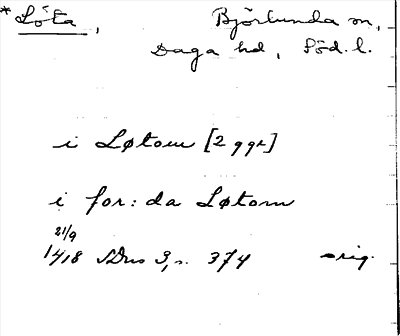 *Löta, Björlunda sn,
Daga hd, Söd. l.
i Løtom [2 ggr]
i for: da Løtom
21/9
1418 SDns 3, s. 374 orig.